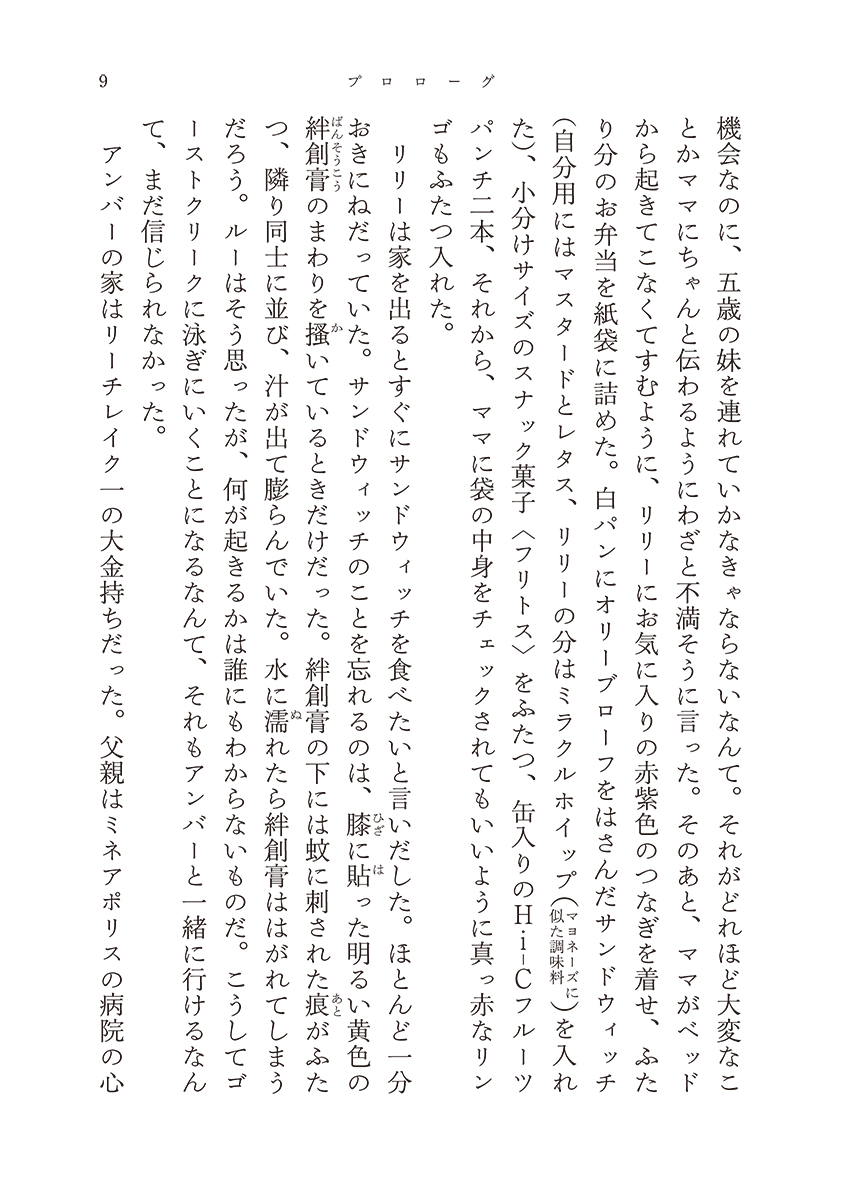 9
プロローグ
機会なのに、五歳の妹を連れていかなきゃならないなんて。それがどれほど大変なこ
とかママにちゃんと伝わるようにわざと不満そうに言った。そのあと、ママがベッド
から起きてこなくてすむように、リリーにお気に入りの赤紫色のつなぎを着せ、ふた
り分のお弁当を紙袋に詰めた。白パンにオリーブローフをはさんだサンドウィッチ
(自分用にはマスタードとレタス、リリーの分はミラクルホイップ(マヨネーズに似た調味料)を入れ
た)、小分けサイズのスナック菓子〈フリトス〉をふたつ、缶入りのHi-Cフルーツ
パンチ二本、それから、ママに袋の中身をチェックされてもいいように真っ赤なリン
ゴもふたつ入れた。
リリーは家を出るとすぐにサンドウィッチを食べたいと言いだした。ほとんど一分
おきにねだっていた。サンドウィッチのことを忘れるのは、膝(ひざ)に貼(は)った明るい黄色の
絆創膏(ばんそうこう)のまわりを搔(か)いているときだけだった。絆創膏の下には蚊に刺された痕(あと)がふた
つ、隣り同士に並び、汁が出て膨らんでいた。水に濡(ぬ)れたら絆創膏ははがれてしまう
だろう。ルーはそう思ったが、何が起きるかは誰にもわからないものだ。こうしてゴ
ーストクリークに泳ぎにいくことになるなんて、それもアンバーと一緒に行けるなん
て、まだ信じられなかった。
アンバーの家はリーチレイク一の大金持ちだった。父親はミネアポリスの病院の心